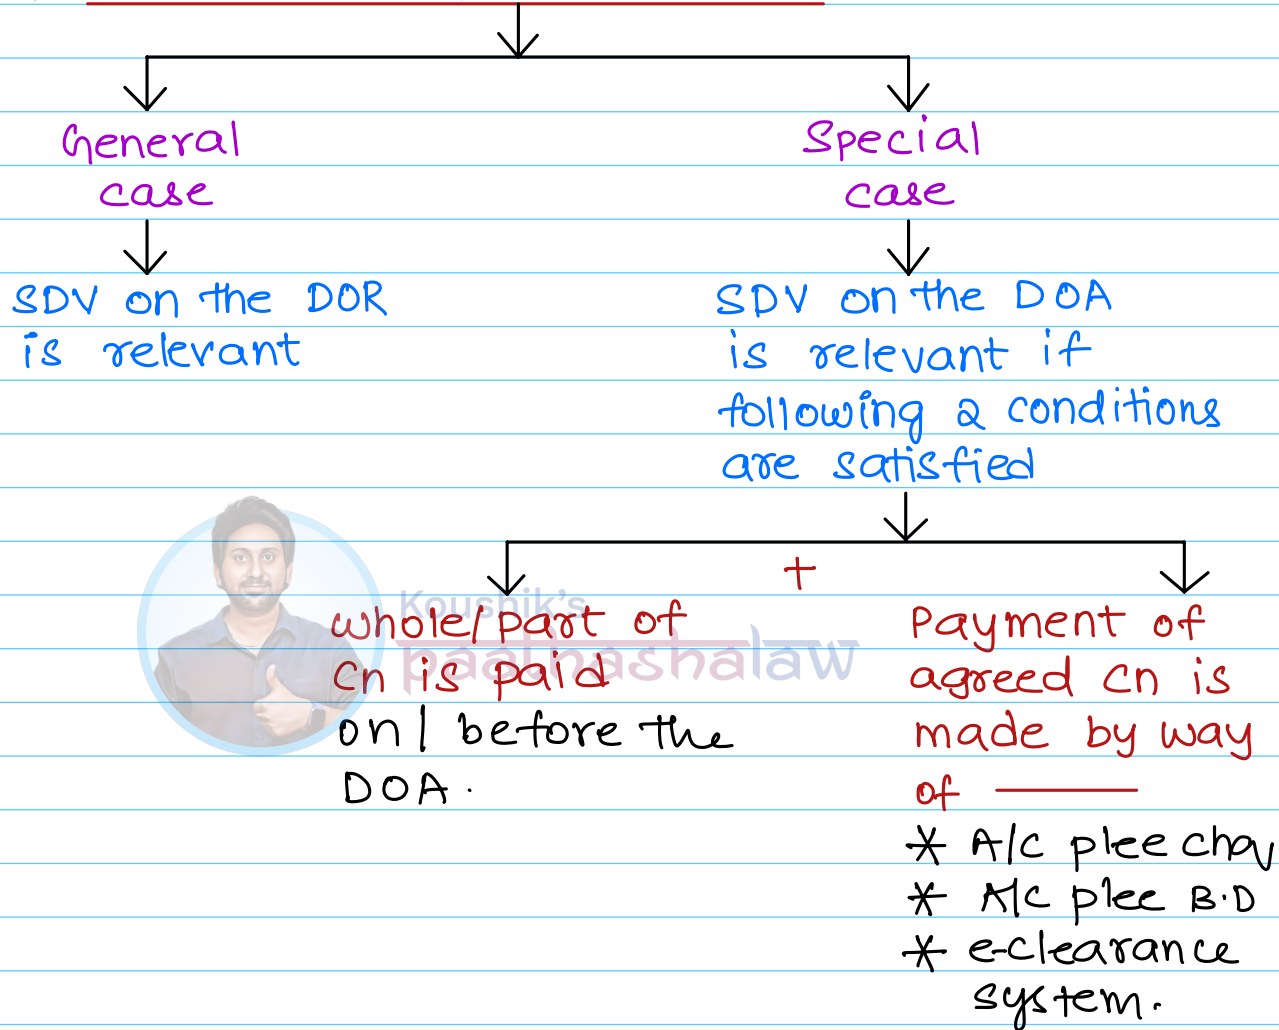 General
case
Special
case
SDV on the DOR
is relevant
SDV on the DOA
is relevant if
following 2 conditions
are satisfied
+
Koushik's
paathashalaw
whole/part of
Cn is paid
on/ before the
DOA.
Payment of
agreed Cn is
made by way
of ———
* A/C
* A/C B.D
* e-clearance
system.